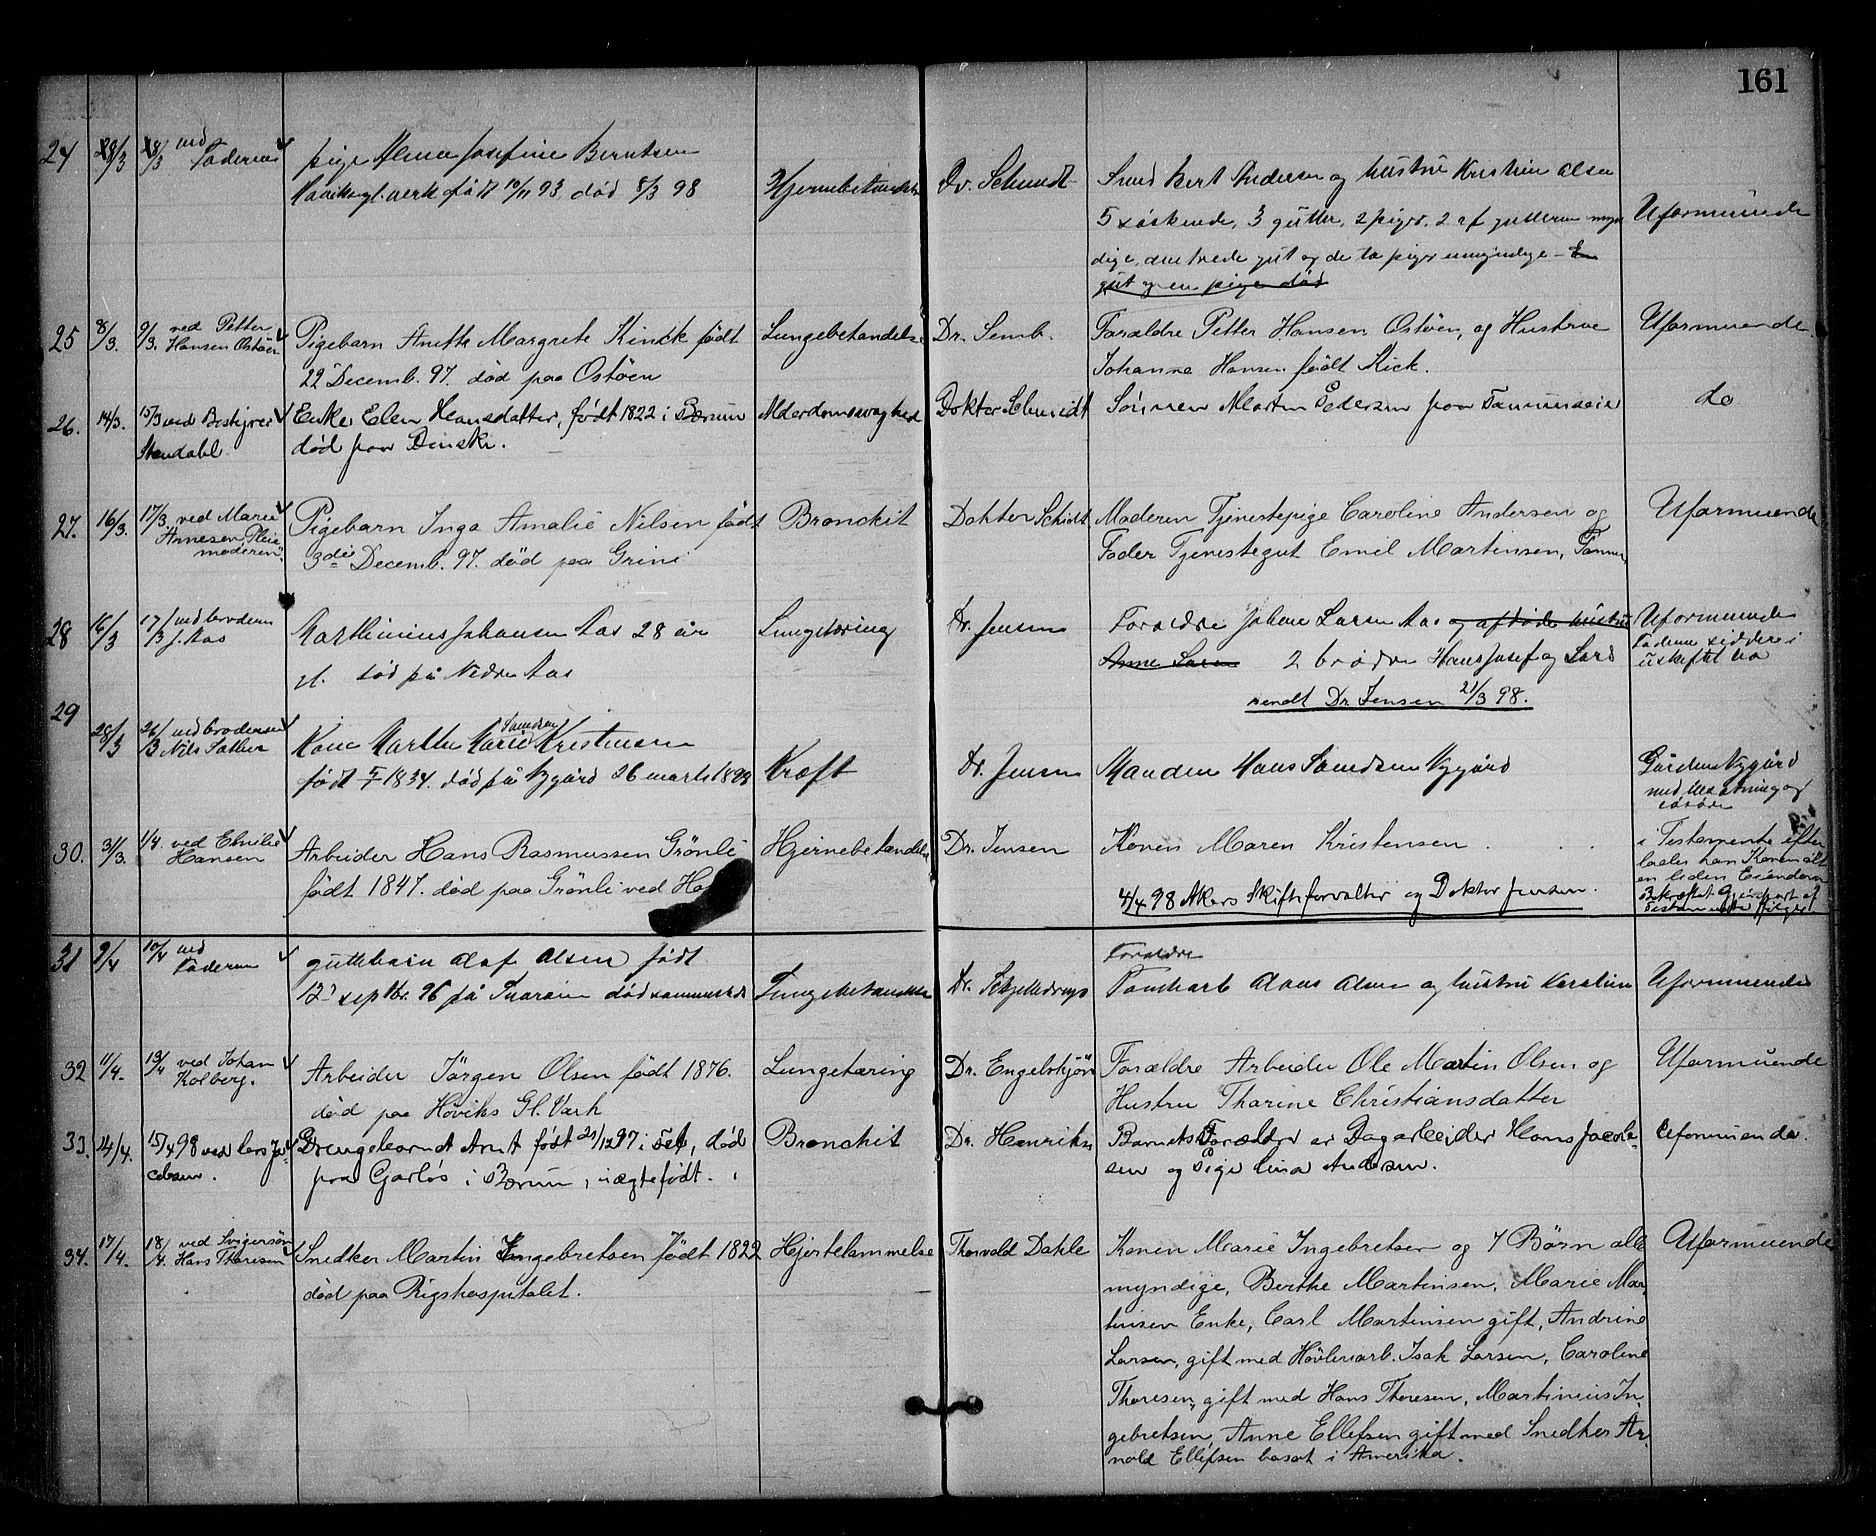 161
24 28/3 28/3 ved Faderen
pige Alma Josefine Berntsen
født 10/11 93 død 8/3 98
Hjernebetændelse
Dr. Schmidt
Smed Bert Andersen og hustru Kristine Olsen
5 søskende, 3 gutter, 2 piger. 2 af gutterne myn
dige, den tredie gut og de to piger umyndige - En
gut og en pige død
Uformuende
25 8/3. 9/3. ved Petter
Hansen Ostøen
Pigebarn Anette Margrete Kinck født
22 Decemb. 97. død paa Ostøen
Lungebetændelse
Dr. Semb.
Forældre Petter Hansen Ostöen, og Hustrue
Johanne Hansen født Kick.
Uformuende
26. 14/3. 15/3 ved Bestyrer
Stendahl
Enke Elen Hansdatter, født 1822 i Bærum
død paa Dönski.
Alderdomssvaghed
Doktor Schmidt
Sönnen Morten Pedersen paa Tanumseie
do
27. 16/3. 17/3. ved Marie
Arnesen, Pleie
moderen.
Pigebarn Inga Amalie Nilsen født
3die Decemb. 97. død paa Grini
Bronckit
Doktor Schidt
Moderen Tjenestepige Caroline Andersen og
Fader Tjenestegut Emil Martinsen, Tanum
Uformuende
28 16/3 17/3 ved broderen
J. Aas
Marthinius Johansen Aas 28 år
gl. død på Nedre Aas
Lungetæring
Dr. Jensen
Forældre Johan Larsen Aas og afdøde hustru
Anne Larsen 2 brødre Hans Josef og Lars
sendt Dr. Jensen 21/3 98.
Uformuende
Faderen sidder i
uskiftet bo
29
28/3 26/3 ved broderen
Nils Sather
Kone Marthe Marie Samdsen Kristensen
født 5/1 1834. død på Nygård 26 marts 1898
Kræft
Dr. Jensen
Manden Hans Samdsen Nygård
Gården Nygård
med besætning og
løsøre
30. 31/3. 1/4. ved Emilie
Hansen
Arbeider Hans Rasmussen Grönli
født 1847. død paa Grönli ved Ha
Hjernebetændelse
Dr. Jensen
Konen Maren Kristensen
4/4 98 Akers Skifteforvalter og Doktor Jensen.
i Testamente efter
lader han Konen alt
en liden Eiendom
Bekræftet Gjenpart af
Testamentet følger
31 9/4 10/4 ved
Faderen
guttebarn Olaf Olsen født
12 septbr. 96 på Snarøen død sammesteds
Lungebetændelse
Dr. Schjelderup
Forældre
Tomtearb Olaus Olsen og hustru Karoline
Uformuende
32 11/4. 13/4 ved Johan
Kolberg.
Arbeider Jörgen Olsen født 1876.
død paa Høviks Gl. Værk
Lungetæring
Dr. Engelskjön
Forældre Arbeider Ole Martin Olsen og
Hustru Thorine Christiansdatter
Uformuende
33. 14/4. 15/4 98 ved Lars Ja-
cobsen.
Drengebarnet Arnt født 21/12 97 i Fet, død
paa Gjarløs i Bærum, uægtefødt.
Bronckit
Dr. Henriks
Barnets Forældre er Dagarbeider Hans Jacob-
sen og Pige Lina Andersen.
Uformuende.
34. 17/4. 18/4. ved Svigersön
Hans Thoresen
Snedker Martin Engebretsen født 1822
død paa Rigshospitalet.
Hjertelammelse
Thorvald Dahle
Konen Marie Ingebretsen og 7 Børn alle
myndige, Berthe Martinsen, Marie Mar
tinsen Enke, Carl Martinsen gift, Andrine
Larsen, gift med Høvleriarb. Isak Larsen, Caroline
Thoresen, gift med Hans Thoresen, Martinius In-
gebretsen, Anne Ellefsen gift med Snedker Ar-
nold Ellefsen bosat i Amerika.
Uformuende